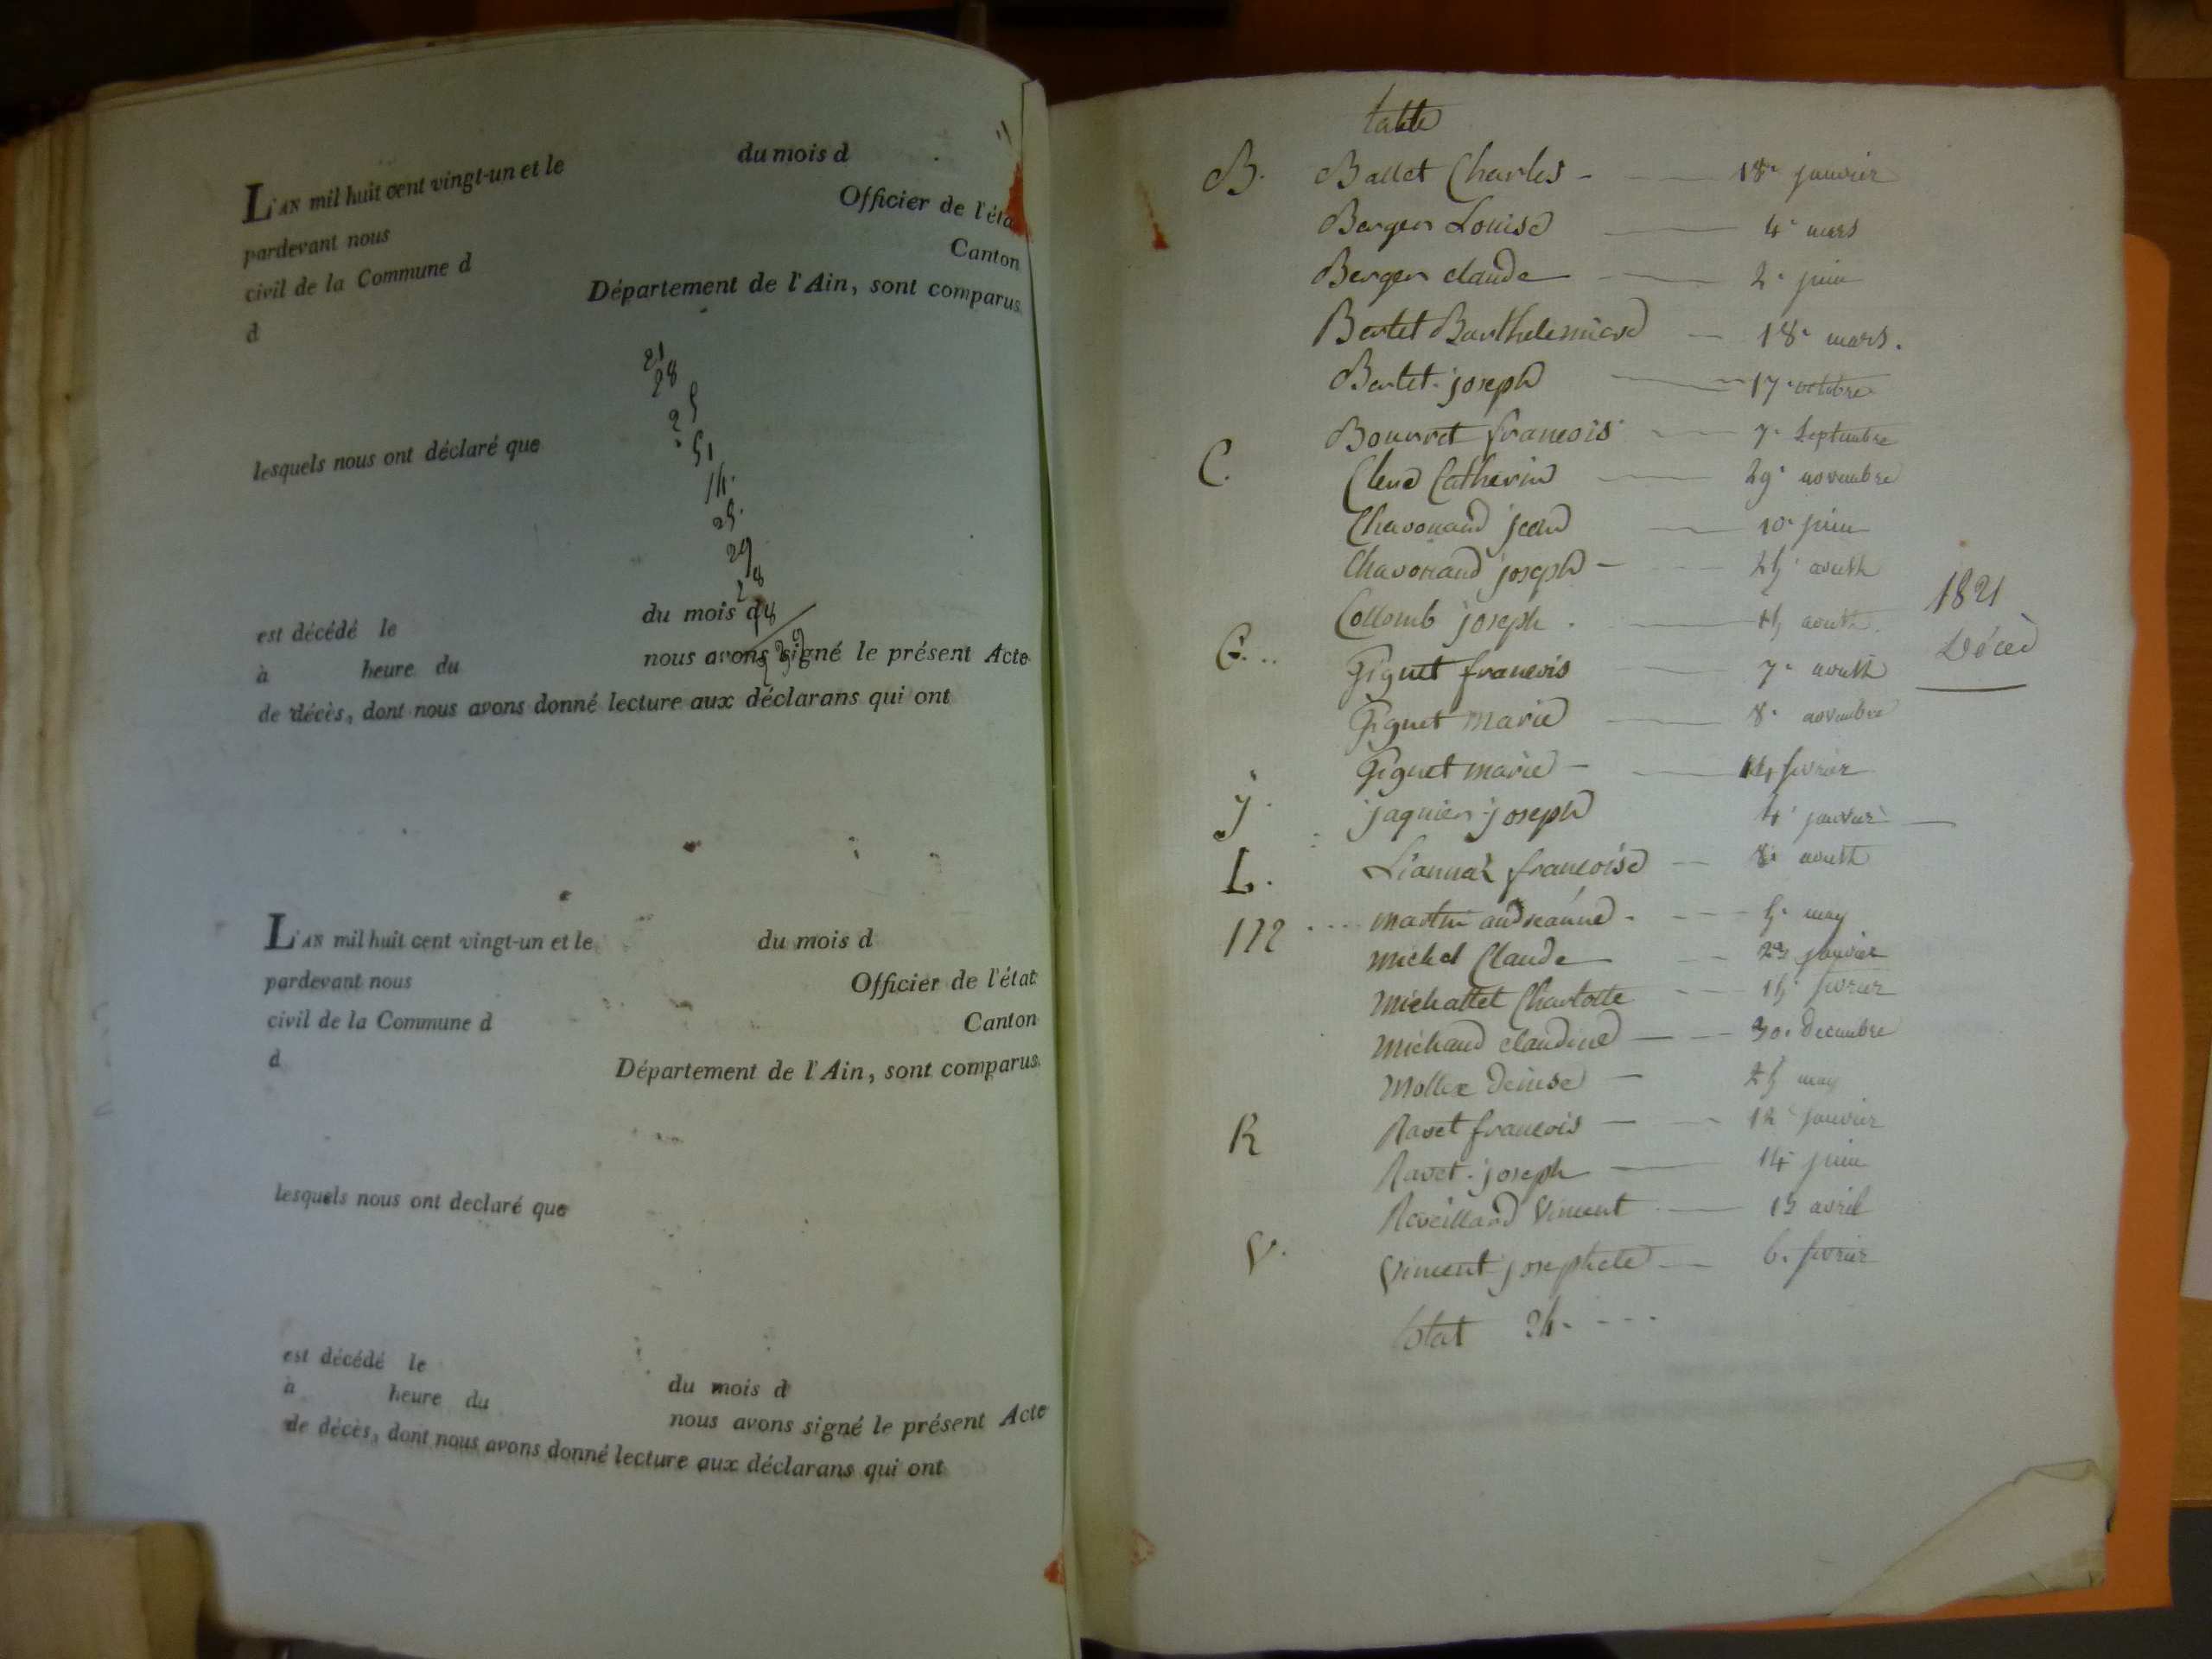 du mois d
L'AN mil huit cent vingt-un et le
pardevant nous
Officier de l'éta
civil de la Commune d
Canton
d
Département de l'Ain, sont comparus
21
28
lesquels nous ont déclaré que
29
est décédé le
du mois d
à heure du
nous avons signé le présent Acte
de décès, dont nous avons donné lecture aux déclarans qui ont
L'AN mil huit cent vingt-un et le
du mois d
pardevant nous
Officier de l'état
civil de la Commune d
Canton
d
Département de l'Ain, sont comparus
lesquels nous ont declaré que
est décédé le
du mois d
à heure du
nous avons signé le présent Acte
de décès, dont nous avons donné lecture aux déclarans qui ont
table
B. Ballet Charles - 18e janvier
Berger Louise 4e mars
Berger claude 2e juin
Bertet Barthelemiese 18e mars.
Bertet joseph 17e octobre
Bourret francois 7e Septembre
C. Clerc Catherine 29e novembre
Chavonand jean 10e juin
Chavonand joseph - 25e aoust
Collomb joseph aoust
G. Giguet francois 7e aoust
Giguet marie 8e novembre
Giguet marie - 14 fevrier
j. jaquier joseph 4e janvier
L. francoise 8e aoust
m martin andreanne 5e may
michel Claude 23 janvier
michallet Charlotte 15e fevrier
michaud claudine 30e decembre
mollex denise - 25 may
R Ravet francois 12e janvier
Ravet joseph 14e juin
Reveilland Vincent 13 avril
V. Vincent josephete 6e fevrier
total 24
1821
Décès